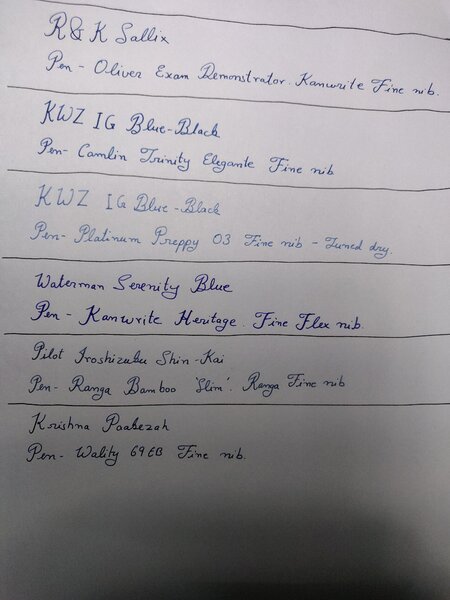 R&K Sallix
Pen - Oliver Exam Demonstrator. Kanwrite Fine nib.
KWZ IG Blue-Black
Pen- Camlin Trinity Elegante Fine nib
KWZ IG Blue-Black
Pen- Platinum Preppy 03 Fine nib - Tuned dry.
Waterman Serenity Blue
Pen - Kanwrite Heritage. Fine Flex nib.
Pilot Iroshizuku Shin-Kai
Pen- Ranga Bamboo 'Slim'. Ranga Fine nib
Krishna Paakezah
Pen- Wality 69EB Fine nib.